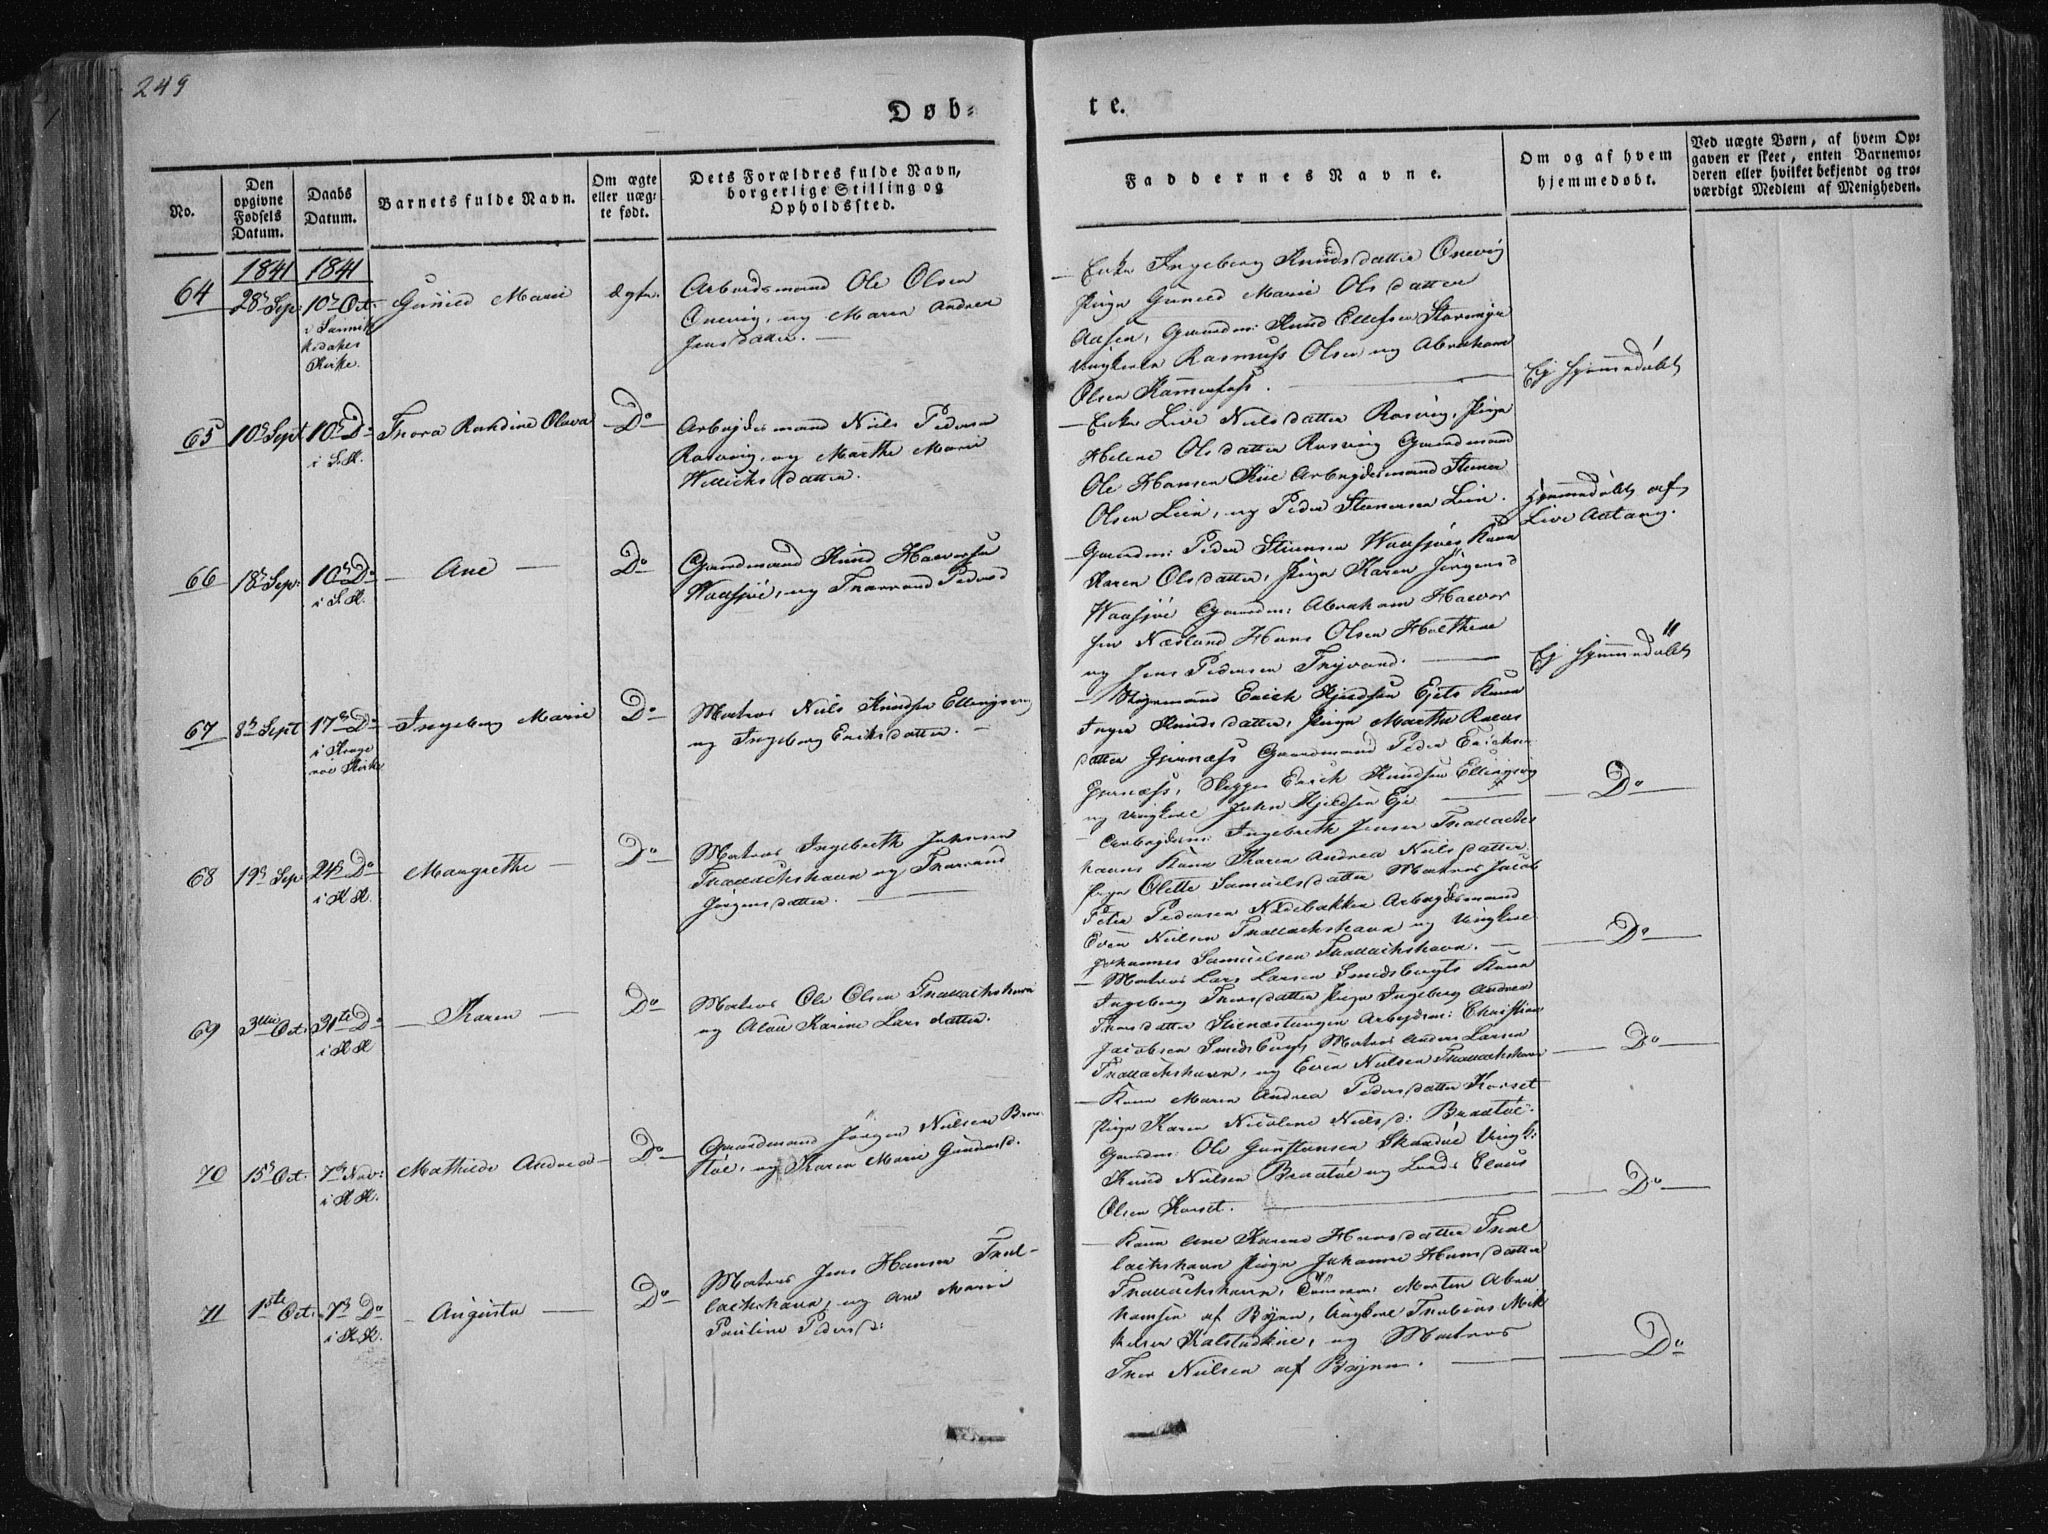 249
Døb-
te.
No.
Den
opgivne
Fødsels
Datum.
Daabs
Datum.
Barnets fulde Navn.
Om ægte
eller uæg-
te født.
Dets Forældres fulde Navn,
borgerlige Stilling og
Opholdssted.
Faddernes Navne.
Om og af hvem
hjemmedøbt.
Ved uægte Børn, af hvem Op-
gaven er skeet, enten Barnemo-
deren eller hvilket bekjendt og tro-
værdigt Medlem af Menigheden.
1841
1841
64
28de Sep.
10de Oct.
i Sannik
kedahls
Kirke.
Guneld Marie
ægte.
Arbeidsmand Ole Olsen
og Maren Andrea
Jensdatter.
Enke Ingeborg Knudsdatter
Pige Guneld Marie Olsdatter
Aasen, Gaardm: Knud Ellefsen
Ungkarn Rasmuss Olsen og Abraham
Olsen
Ej hjemmedøbt
65
10de Sept
10de Do
i S. K.
Thora Olava
Do
Arbejdsmand Niels Pedersen
Rosvig, og Marthe Marie
Enke Live Nielsdatter Rosvig, Pige
Helene Olsdatter Rosvig Gaardmand
Ole Hansen Arbejdsmand Steener
Olsen Lien, og Peder Steenersen Lien.
Hjemmedøbt af
Live
66
18de Sep:
10de Do
i S. K.
Ane
Do
Gaardmand Knud Halvorsen
Waasjøe, og
Gaardm: Peder Waasjøes Kone
Karen Olsdatter, Pige Karen Jørgensd
Waasjøe Gaardm: Abraham Halvor
sen Hans Olsen
og Jens Pedersen
Ej hjemmedøbt
67
8de Sept
17de Do
i Krage
røe Kirke
Ingeborg Marie
Do
Matros Niels Knudsen Ellingsvig
og Ingeborg Eriksdatter.
Erich Kjeldsen Ejets Kone
Inger Knudsdatter, Pige Marthe
datter Gjernæss Gaardmand Peder Erichsen
Gjernæss, Erich Knudsen Ellingsvig
og Ungkarl John Kjeldsen Eje
Do
68
19de Sep.
24de Do
i K. K.
Margrethe
Do
Matros Ingebreth Johnsen
Trallachshavn og
Jørgensdatter.
Arbejdsm: Ingebreth Jensen Trallachs
havns Kone Karen Andrea Nielsdatter
Pige Olette Samuelsdatter Matros Jacob
Peter Pedersen Arbejdsmand
Even Nielsen Trallachshavn og Ungkarl
Johannes Samuelsen Trallachshavn.
Do
69
3die Oct.
31te Do
i K. K
Karen
Do
Matros Ole Olsen Trallachshavn
og Karine Larsdatter.
Matros Lars Larsen Smedsbugts Kone
Ingeborg Thorsdatter Pige Ingeborg Andrea
Thorsdatter Stenestangen Arbejdsm: Christian
Jacobsen Smedsbugt, Matros Anders Larsen
Trallachshavn, og Even Nielsen Trallachshavn
Do
70
15de Oct.
7de Nov:
i K. K.
Mathilde Andrea
Do
Gaardmand Jørgen Nielsen Braa-
tøe, og Karen Marie
Kone Maren Andrea Pedersdatter Korset
Pige Karen Nicoline Nielsd: Braatøe.
Gaardm: Ole Gunstansen Skaadøe Ungk:
Knud Nielsen Braatøe og Claus
Olsen Korset.
Do
71
1ste Oct.
7de Do
i K. K.
Augusta
Do
Matros Jens Hansen Tral-
lachshavn, og Ane Marie
Pauline Pedersd:
Kone Ane Karine Hansdatter Tral
lachshavn Pige Johanne Hansdatter
Trallachshavn, Tømmerm: Morten Abra
hamsen af Byen, Ungkarl Thobias Mik
kelsen og Matros
Thor Nielsen af Byen.
Do